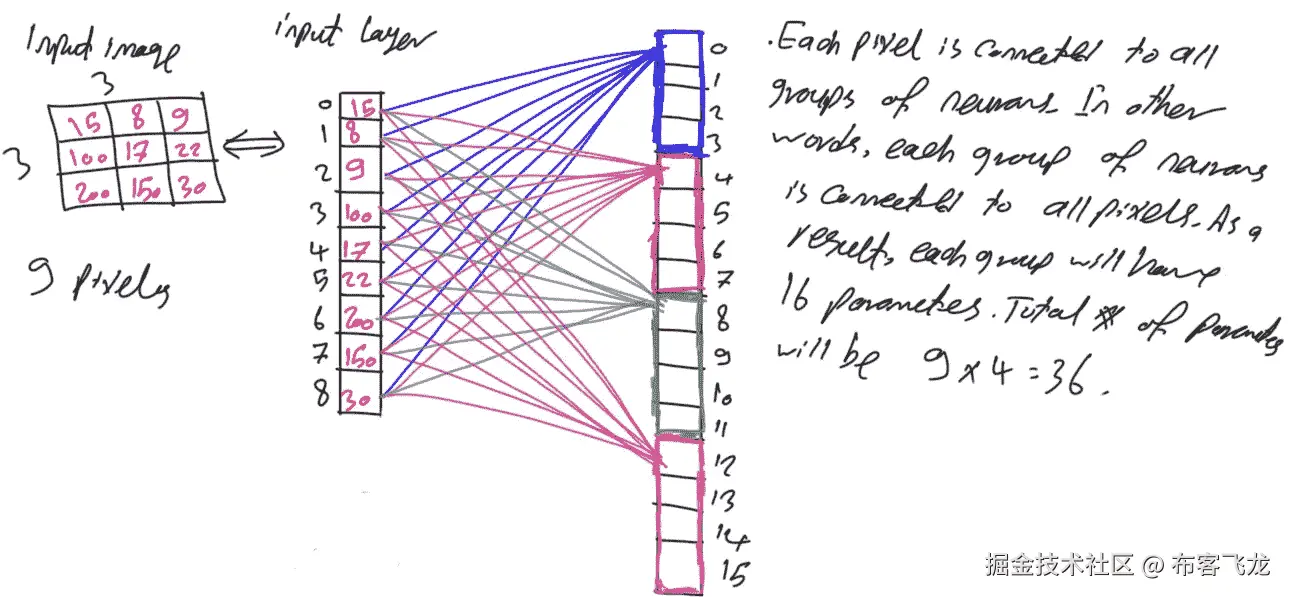 Input image
3
15 8 9
3
100 17 22
200 150 30
9 pixels
input layer
0 15
1 8
2 9
3 100
4 17
5 22
6 200
7 150
8 30
0
1
2
3
4
5
6
7
8
9
10
11
12
13
14
15
.Each pixel is connected to all
groups of neurons. In other
words, each group of neurons
is connected to all pixels. As a
result, each group will have
16 parameters. Total # of parameters
will be 9 x 4 = 36.
掘金技术社区 @ 布客飞龙